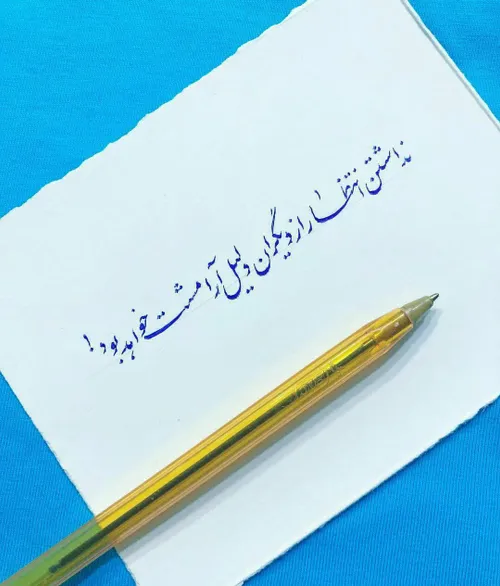 نداشتن انتظار از دیگران دلیل آرامشت خواهد بود!